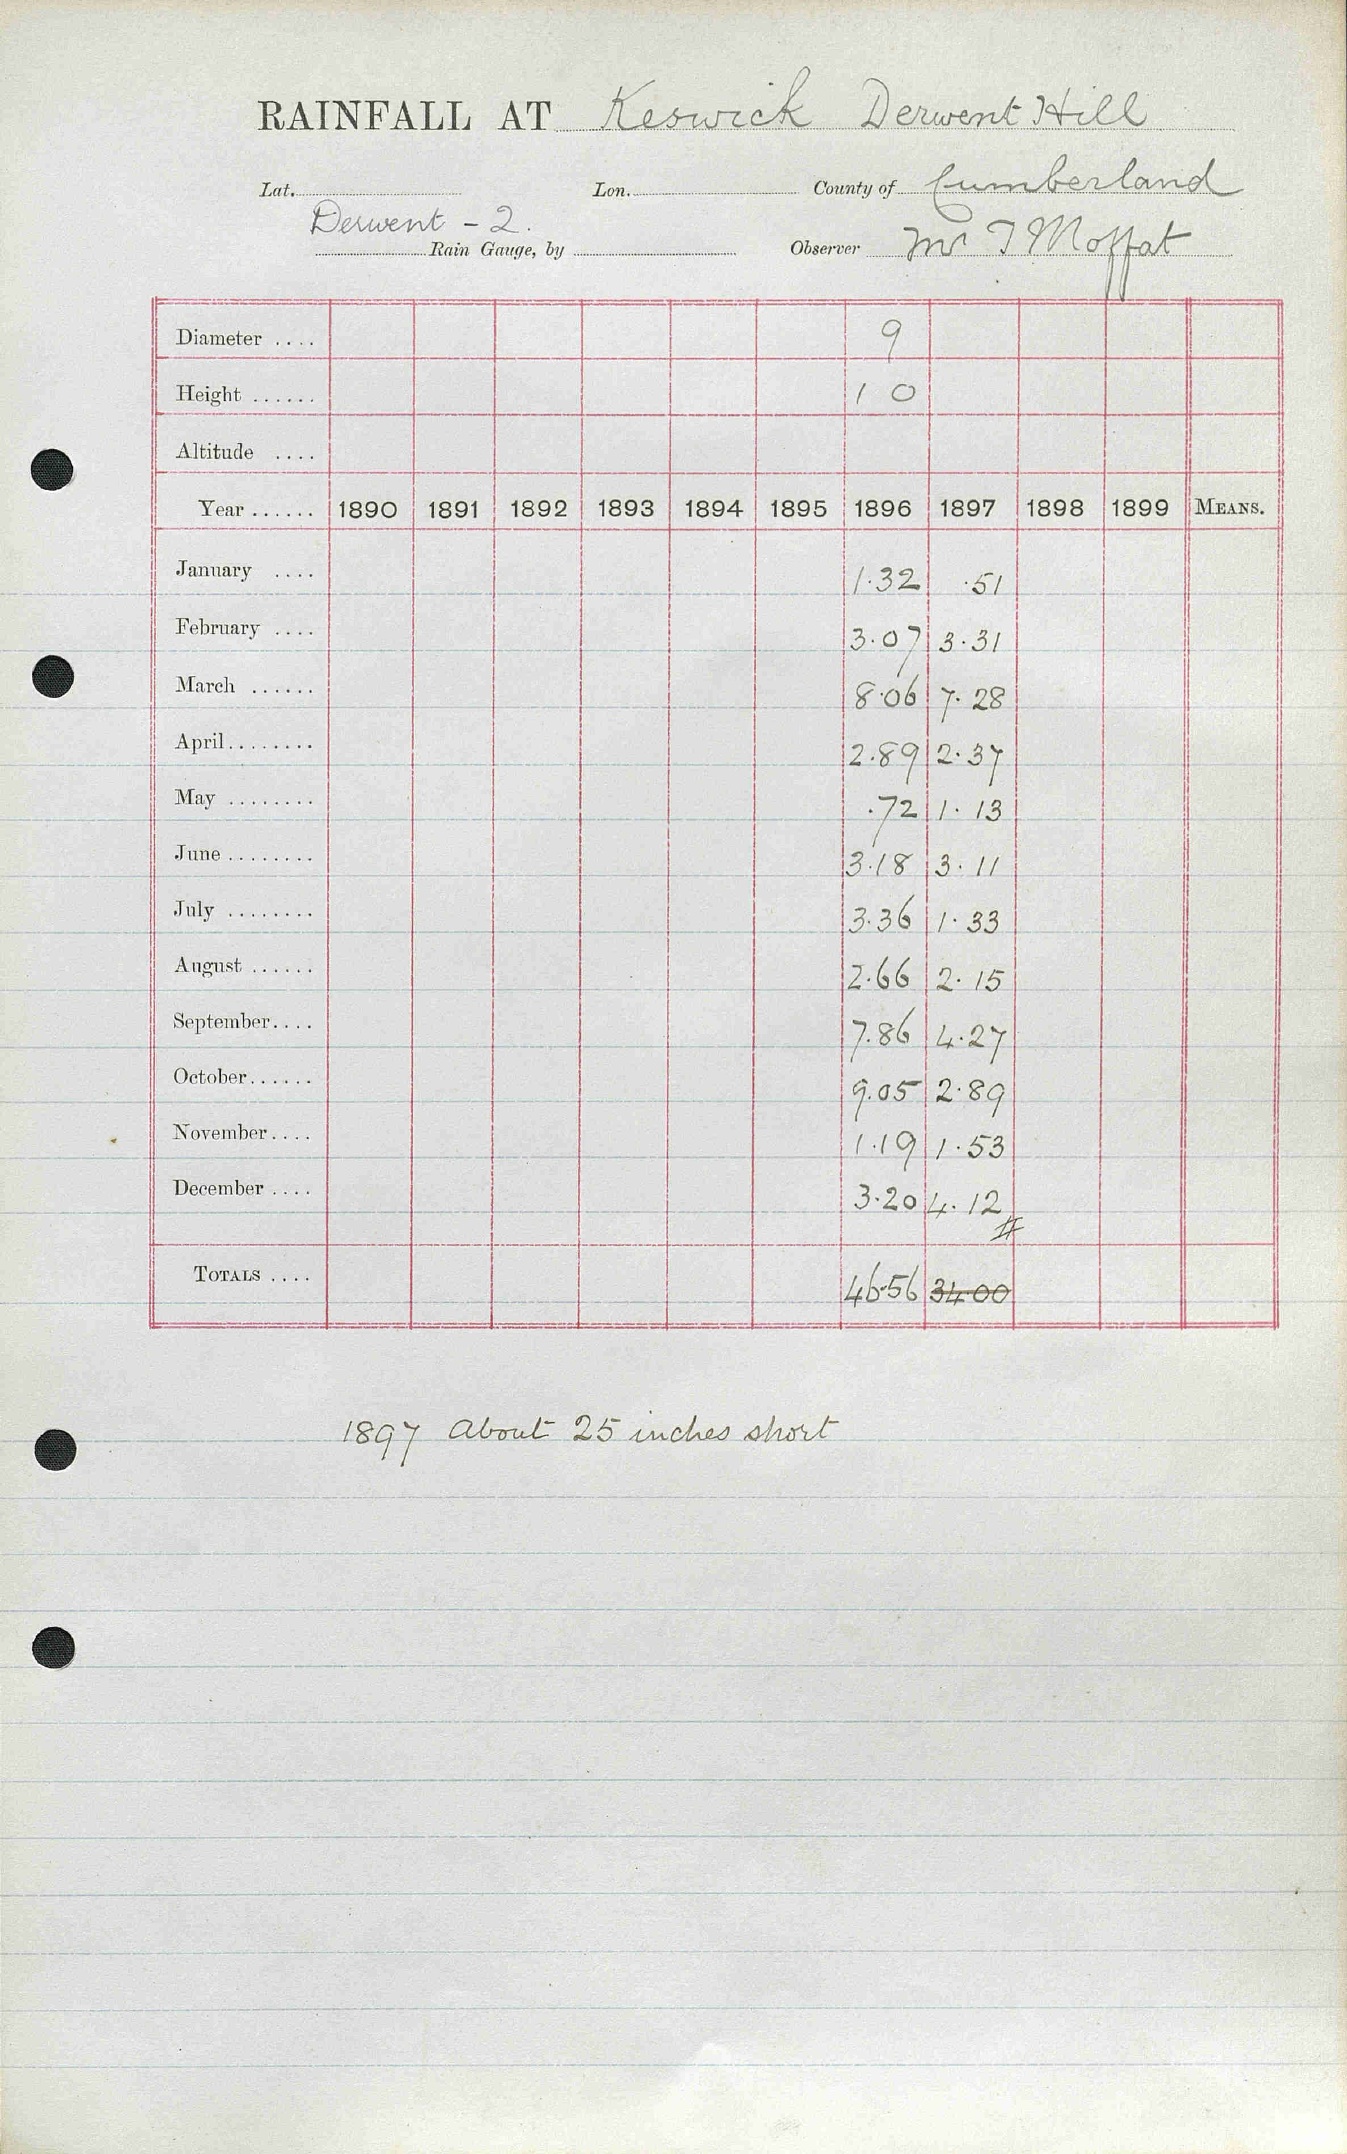 RAINFALL AT Keswick Derwent Hill
Lat. Lon. County of Cumberland
Derwent - 2.
Rain Gauge, by Observer Mr T Moffat
Diameter .... 9
Height ...... 1 0
Altitude ....
Year ...... 1890 1891 1892 1893 1894 1895 1896 1897 1898 1899 MEANS.
January .... 1.32 .51
February .... 3.07 3.31
March ...... 8.06 7.28
April........ 2.89 2.37
May ........ .72 1.13
June ........ 3.18 3.11
July ........ 3.36 1.33
August ...... 2.66 2.15
September.... 7.86 4.27
October...... 9.05 2.89
November.... 1.19 1.53
December .... 3.20 4.12
#
TOTALS .... 46.56 34.00
1897 About 25 inches short